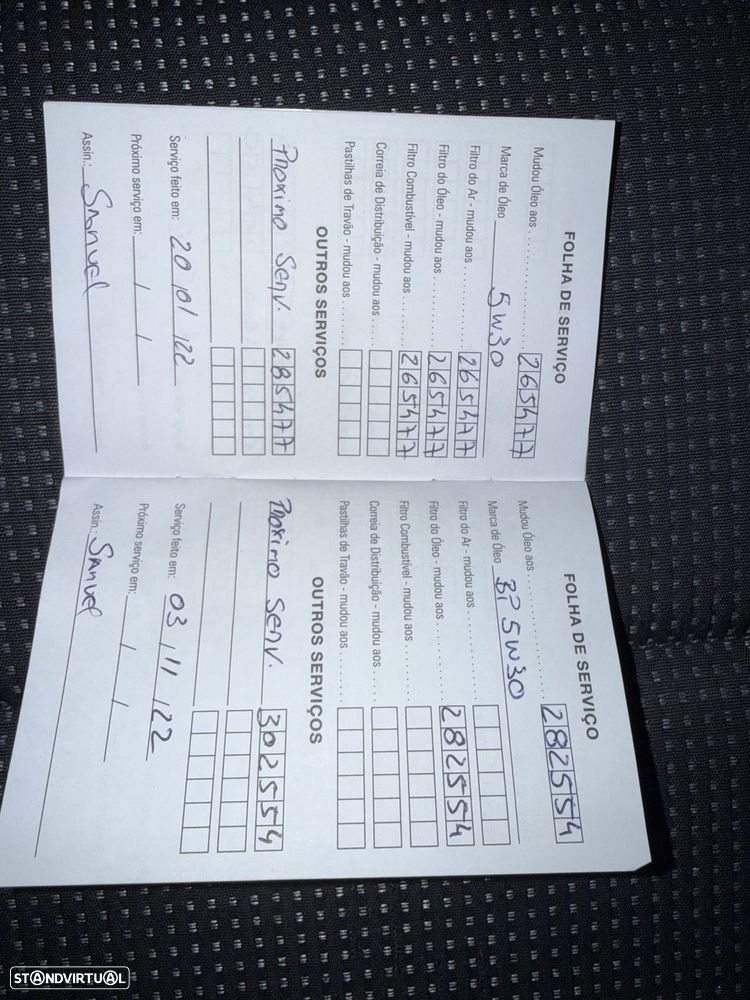 FOLHA DE SERVIÇO
Mudou Óleo aos . . . . . . . . . . . . . . . . . 265477
Marca de Óleo 5W30
Filtro do Ar - mudou aos . . . . . . . . . . . 265477
Filtro do Óleo - mudou aos . . . . . . . . . 265477
Filtro Combustível - mudou aos . . . . . . 265477
Correia de Distribuição - mudou aos . . . .
Pastilhas de Travão - mudou aos . . . . . .
OUTROS SERVIÇOS
Proximo Serv. 285477
Serviço feito em: 20 / 01 / 22
Próximo serviço em: / /
Assin.:
FOLHA DE SERVIÇO
Mudou Óleo aos . . . . . . . . . . . . . . . . . 282554
Marca de Óleo BP 5W30
Filtro do Ar - mudou aos . . . . . . . . . . .
Filtro do Óleo - mudou aos . . . . . . . . . 282554
Filtro Combustível - mudou aos . . . . . .
Correia de Distribuição - mudou aos . . . .
Pastilhas de Travão - mudou aos . . . . . .
OUTROS SERVIÇOS
Proximo Serv. 302554
Serviço feito em: 03 / 11 / 22
Próximo serviço em: / /
Assin.:
STANDVIRTUAL